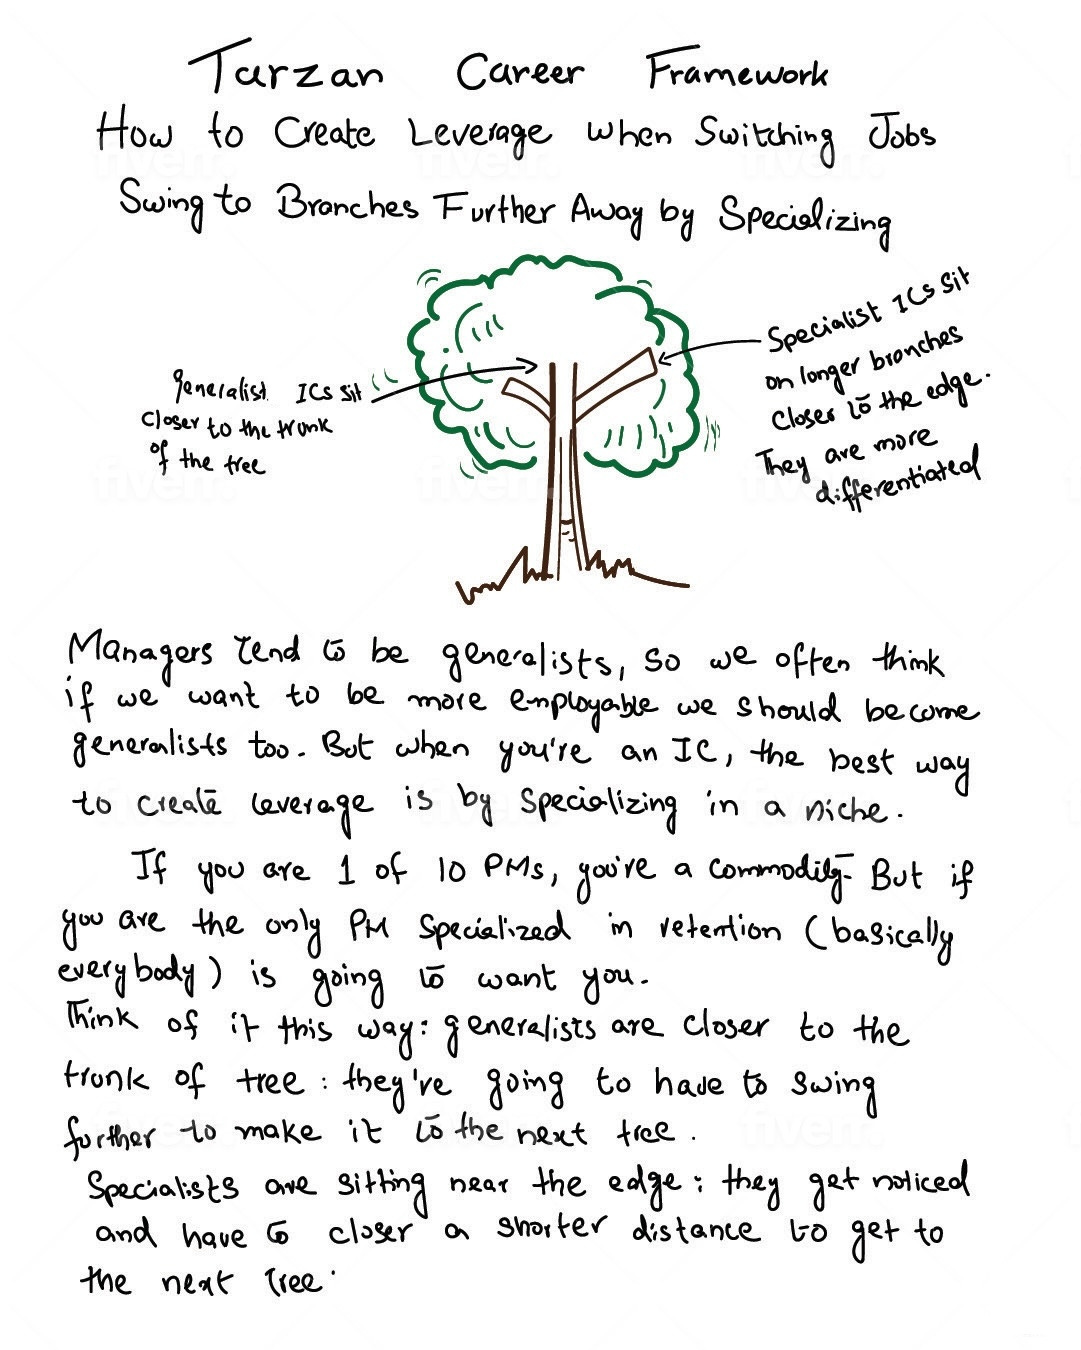 Tarzan Career Framework
How to Create Leverage when Switching Jobs
Swing to Branches Further Away by Specializing
generalist ICs sit
closer to the trunk
of the tree
Specialist ICs sit
on longer branches
closer to the edge.
They are more
differentiated
Managers tend to be generalists, so we often think
if we want to be more employable we should become
generalists too. But when you're an IC, the best way
to create leverage is by specializing in a niche.
If you are 1 of 10 PMs, you're a commodity. But if
you are the only PM specialized in retention (basically
everybody) is going to want you.
Think of it this way: generalists are closer to the
trunk of tree: they're going to have to swing
further to make it to the next tree.
Specialists are sitting near the edge: they get noticed
and have to closer a shorter distance to get to
the next tree.
fiverr.